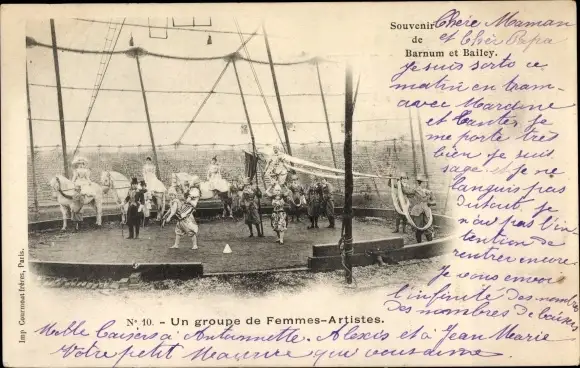 Souvenir
de
Barnum et Bailey.
Chère Maman
et Cher Papa
Je suis sorti ce
matin en tram
avec Mardine
et Tantes, je
me porte très
bien je suis
sage je ne
languis pas
du tout je
n'ai pas l'in
tention de
rentrer encore.
Je vous envoi
l'infinité des nombres
des nombres de baisers
Mille baisers à Antoinnette. Alexis et à Jean Marie
Votre petit Maurice qui vous aime
No. 10. - Un groupe de Femmes-Artistes.
Imp. Courmont frères, Paris.